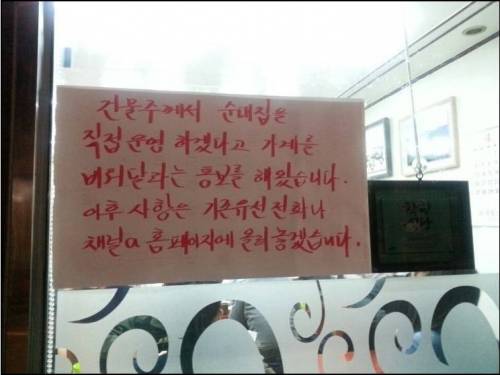 건물주께서 순대집을
직접운영 하겠다고 가게를
비워달라는 통보를 해왔습니다.
이후 사항은 기존유선전화나
채널a 홈페이지에 올려놓겠습니다.